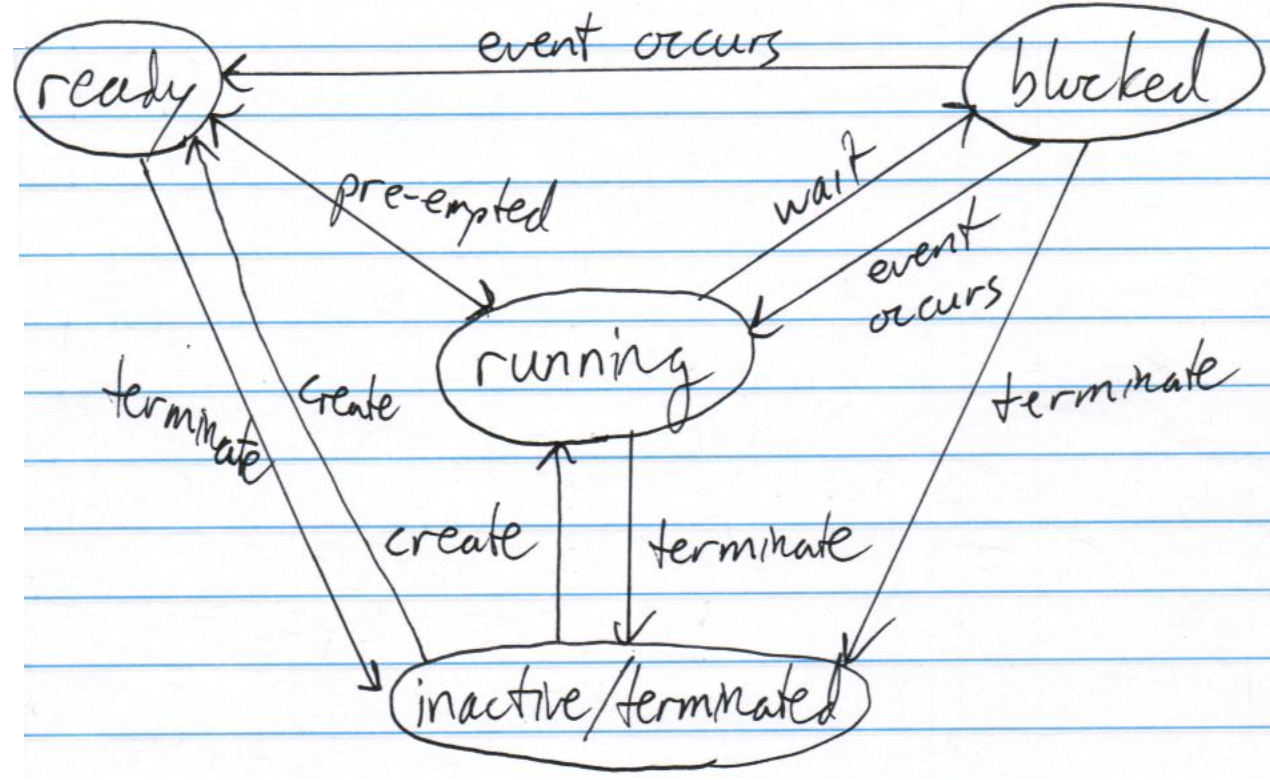 event occurs
ready
blocked
pre-empted
wait
event
occurs
running
terminate
create
terminate
create
terminate
inactive/terminated